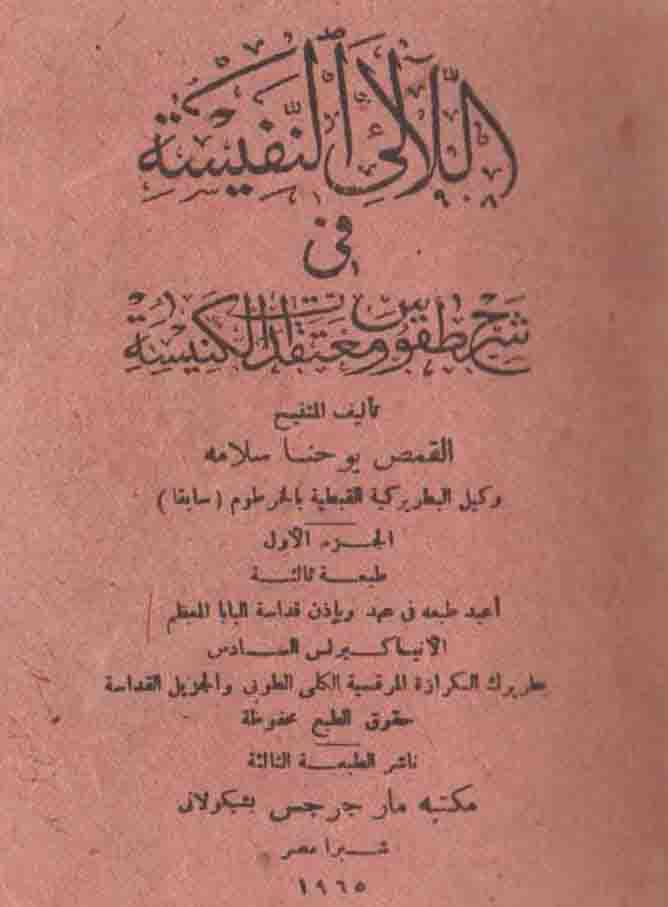 اللآلئ النفيسة
١٩٠٨
فى
شرح طقوس ومعتقدات الكنيسة
تأليف المتنيح
القمص يوحنا سلامه
وكيل البطريركية القبطية بالخرطوم (سابقا)
الجزء الأول
طبعة ثالثة
أعيد طبعه فى عهد وبإذن قداسة البابا المعظم
الأنبا كيرلس السادس
بطريرك الكرازة المرقسية الكلى الطوبى والجزيل القداسة
حقوق الطبع محفوظة
ناشر الطبعة الثالثة
مكتبه مار جرجس بشيكولانى
شبرا مصر
١٩٦٥